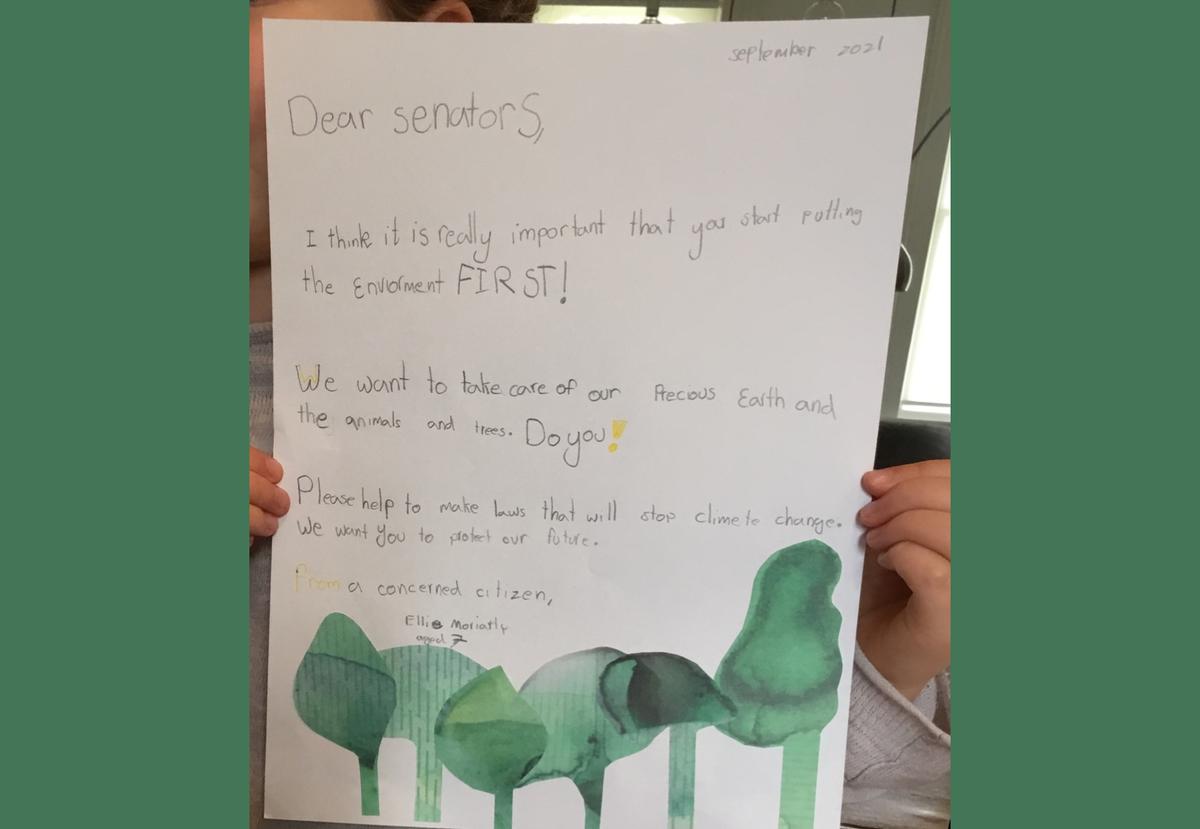 september 2021
Dear senators,
I think it is really important that you start putting
the Enviorment FIRST!
We want to take care of our Precious Earth and
the animals and trees. Do you!
Please help to make laws that will stop climete change.
We want You to protect our future.
From a concerned citizen,
Ellie Moriatly
aged 7